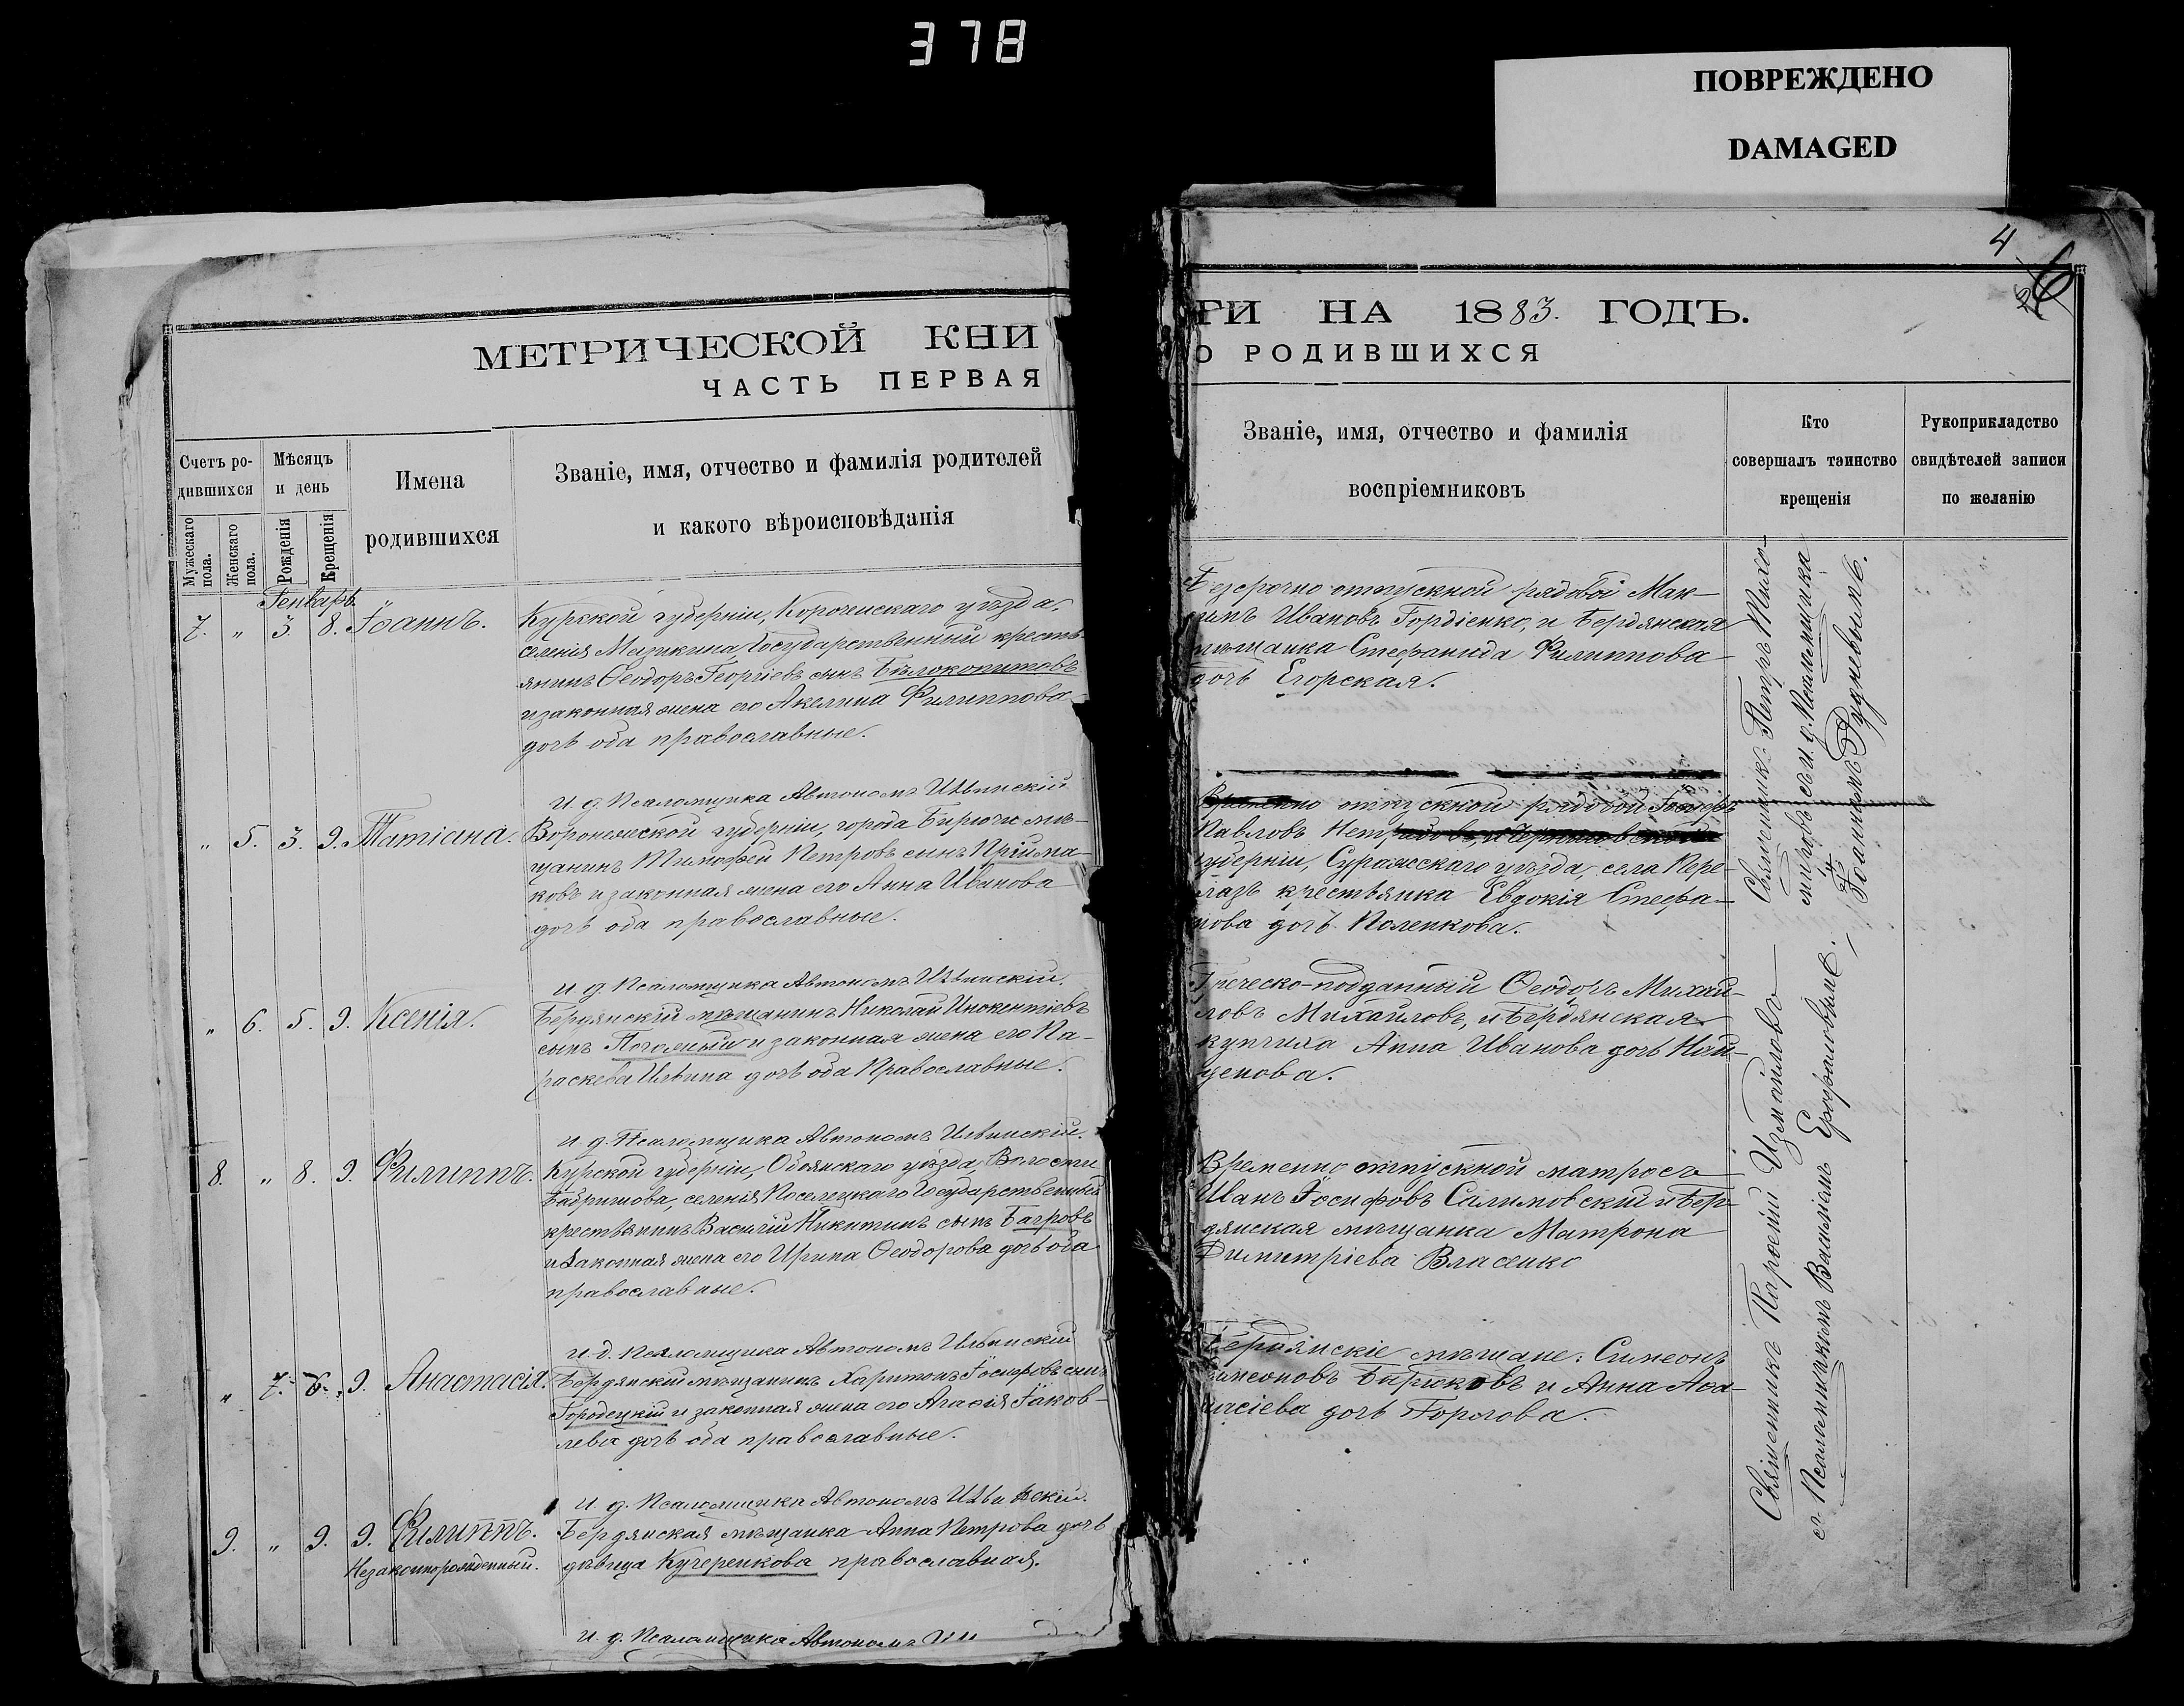 378
ПОВРЕЖДЕНО
DAMAGED
4
6
МЕТРИЧЕСКОЙ КНИ
ЧАСТЬ ПЕРВАЯ
Счетъ ро-
дившихся
Мужескаго пола.
Женскаго пола.
Мѣсяцъ
и день
Рожденія
Крещенія
Имена
родившихся
Званіе, имя, отчество и фамилія родителей
и какого вѣроисповѣданія
Генварь.
7. „ 3. 8. Іоаннъ.
Курской губерніи, Корочинскаго уѣзда,
селенія Мазикина, Государственный кресть-
янинъ Ѳеодоръ Георгіевъ сынъ Бѣлокопитовъ
и законная жена его Акелина Филиппова
дочь оба православные.
И. д. Псаломщика Автономъ Ильинскій
„ 5. 3. 9. Татіана.
Воронежской губерніи, города Бирючи мѣ-
щанинъ Тимофей Петровъ сынъ Прийма-
ковъ и законная жена его Анна Иванова
дочь оба православные.
и д. Псаломщика Автономъ Ильинскій.
„ 6. 5. 9. Ксенія.
Бердянскій мѣщанинъ Николай Инокентіевъ
сынъ и законная жена его Па-
раскева Ильина дочь оба Православные.
и д. Псаломщика Автономъ Ильинскій.
8. „ 8. 9. Филиппъ.
Курской губерніи, Обоянскаго уѣзда, Волости
селенія Государственный
крестьянинъ Василій Никитинъ сынъ Багровъ
и законная жена его Ирина Ѳеодорова дочь оба
православные.
и. д. Псаломщика Автономъ Ильинскій
„ 7. 6. 9. Анастасія.
Бердянскій мѣщанинъ Харитонъ Іосифовъ сынъ
Городецкій и законная жена его Агафія Іаков-
лева дочь оба православные.
И. д. Псаломщика Автономъ Ильинскій.
9. „ 9. 9. Филиппъ.
Незаконнорожденный.
Бердянская мѣщанка Анна Петрова дочь
дѣвица Кучеренкова православная.
и. д. Псаломщика Автономъ
ГИ НА 1883. ГОДЪ.
О РОДИВШИХСЯ
Званіе, имя, отчество и фамилія
воспріемниковъ
Кто
совершалъ таинство
крещенія
Рукоприкладство
свидѣтелей записи
по желанію
Безсрочно отпускной рядовой Мак-
симъ Ивановъ Гордіенко, и Бердянская
мѣщанка Стефанида Филиппова
дочь Егорская.
отпускной рядовой
Павловъ
губерніи, Суражскаго уѣзда, села Пере-
лазъ крестьянка Евдокія Стефа-
нова дочь Поленкова.
Греческо-подданный Ѳеодоръ Михай-
ловъ Михайловъ, и Бердянская
купчиха Анна Иванова дочь Най-
денова.
Временно отпускной матросъ
Иванъ Іосифовъ Салимовскій и Бер-
дянская мѣщанка Матрона
Димитріева Власенко
Бердянскіе мѣщане: Симеонъ
Симеоновъ Бирюковъ и Анна Аѳа-
насіева дочь Горлова.
Священникъ Петръ Тихо-
мировъ съ и. д. Псаломщика
Іоанномъ Рудневымъ.
Священникъ Парѳеній Измаиловъ
съ Псаломщикомъ Василіемъ Ерофаловымъ.